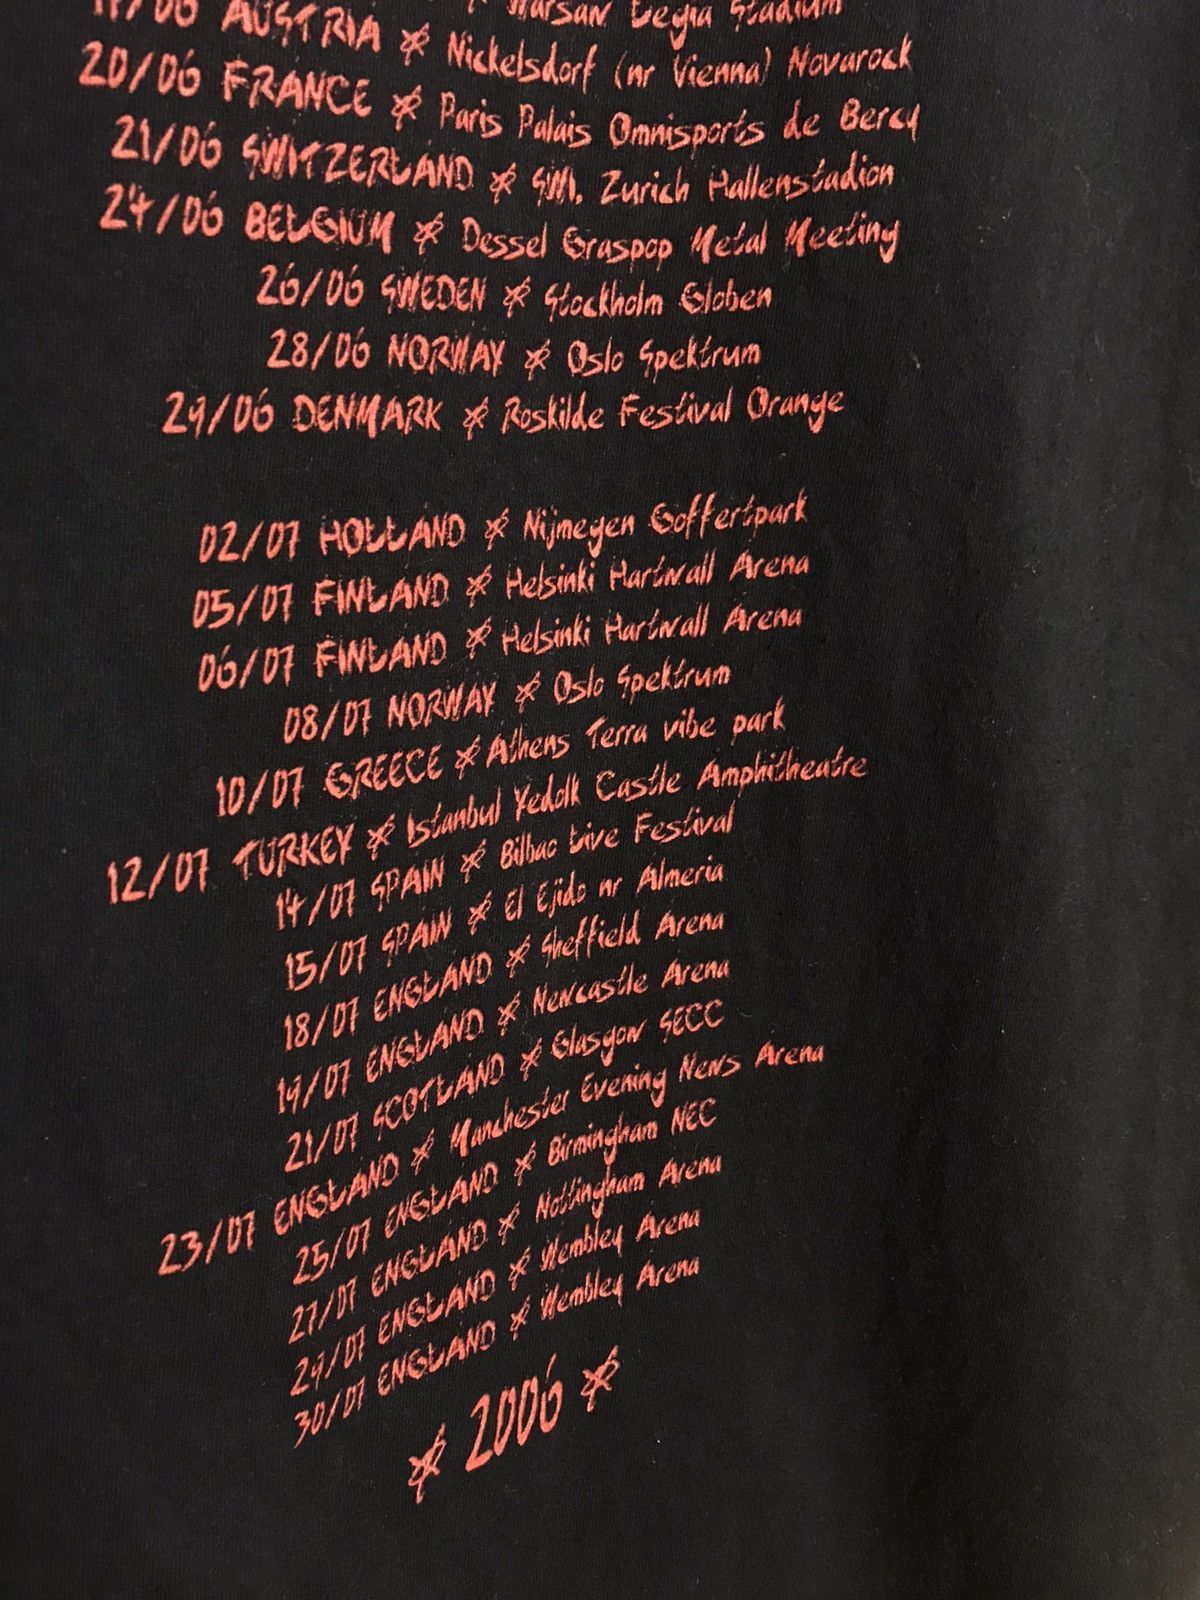 Warsaw Legia Stadium
AUSTRIA * Nickelsdorf (nr Vienna) Novarock
20/06 FRANCE * Paris Palais Omnisports de Bercy
21/06 SWITZERLAND * SWI. Zurich Hallenstadion
24/06 BELGIUM * Dessel Graspop Metal Meeting
26/06 SWEDEN * Stockholm Globen
28/06 NORWAY * Oslo Spektrum
29/06 DENMARK * Roskilde Festival Orange
02/07 HOLLAND * Nijmegen Goffertpark
05/07 FINLAND * Helsinki Hartwall Arena
06/07 FINLAND * Helsinki Hartwall Arena
08/07 NORWAY * Oslo Spektrum
10/07 GREECE * Athens Terra vibe park
12/07 TURKEY * Istanbul Yedolk Castle Amphitheatre
14/07 SPAIN * Bilbao Live Festival
15/07 SPAIN * El Ejido nr Almeria
18/07 ENGLAND * Sheffield Arena
19/07 ENGLAND * Newcastle Arena
21/07 SCOTLAND * Glasgow SECC
23/07 ENGLAND * Manchester Evening News Arena
25/07 ENGLAND * Birmingham NEC
27/07 ENGLAND * Nottingham Arena
29/07 ENGLAND * Wembley Arena
30/07 ENGLAND * Wembley Arena
* 2006 *